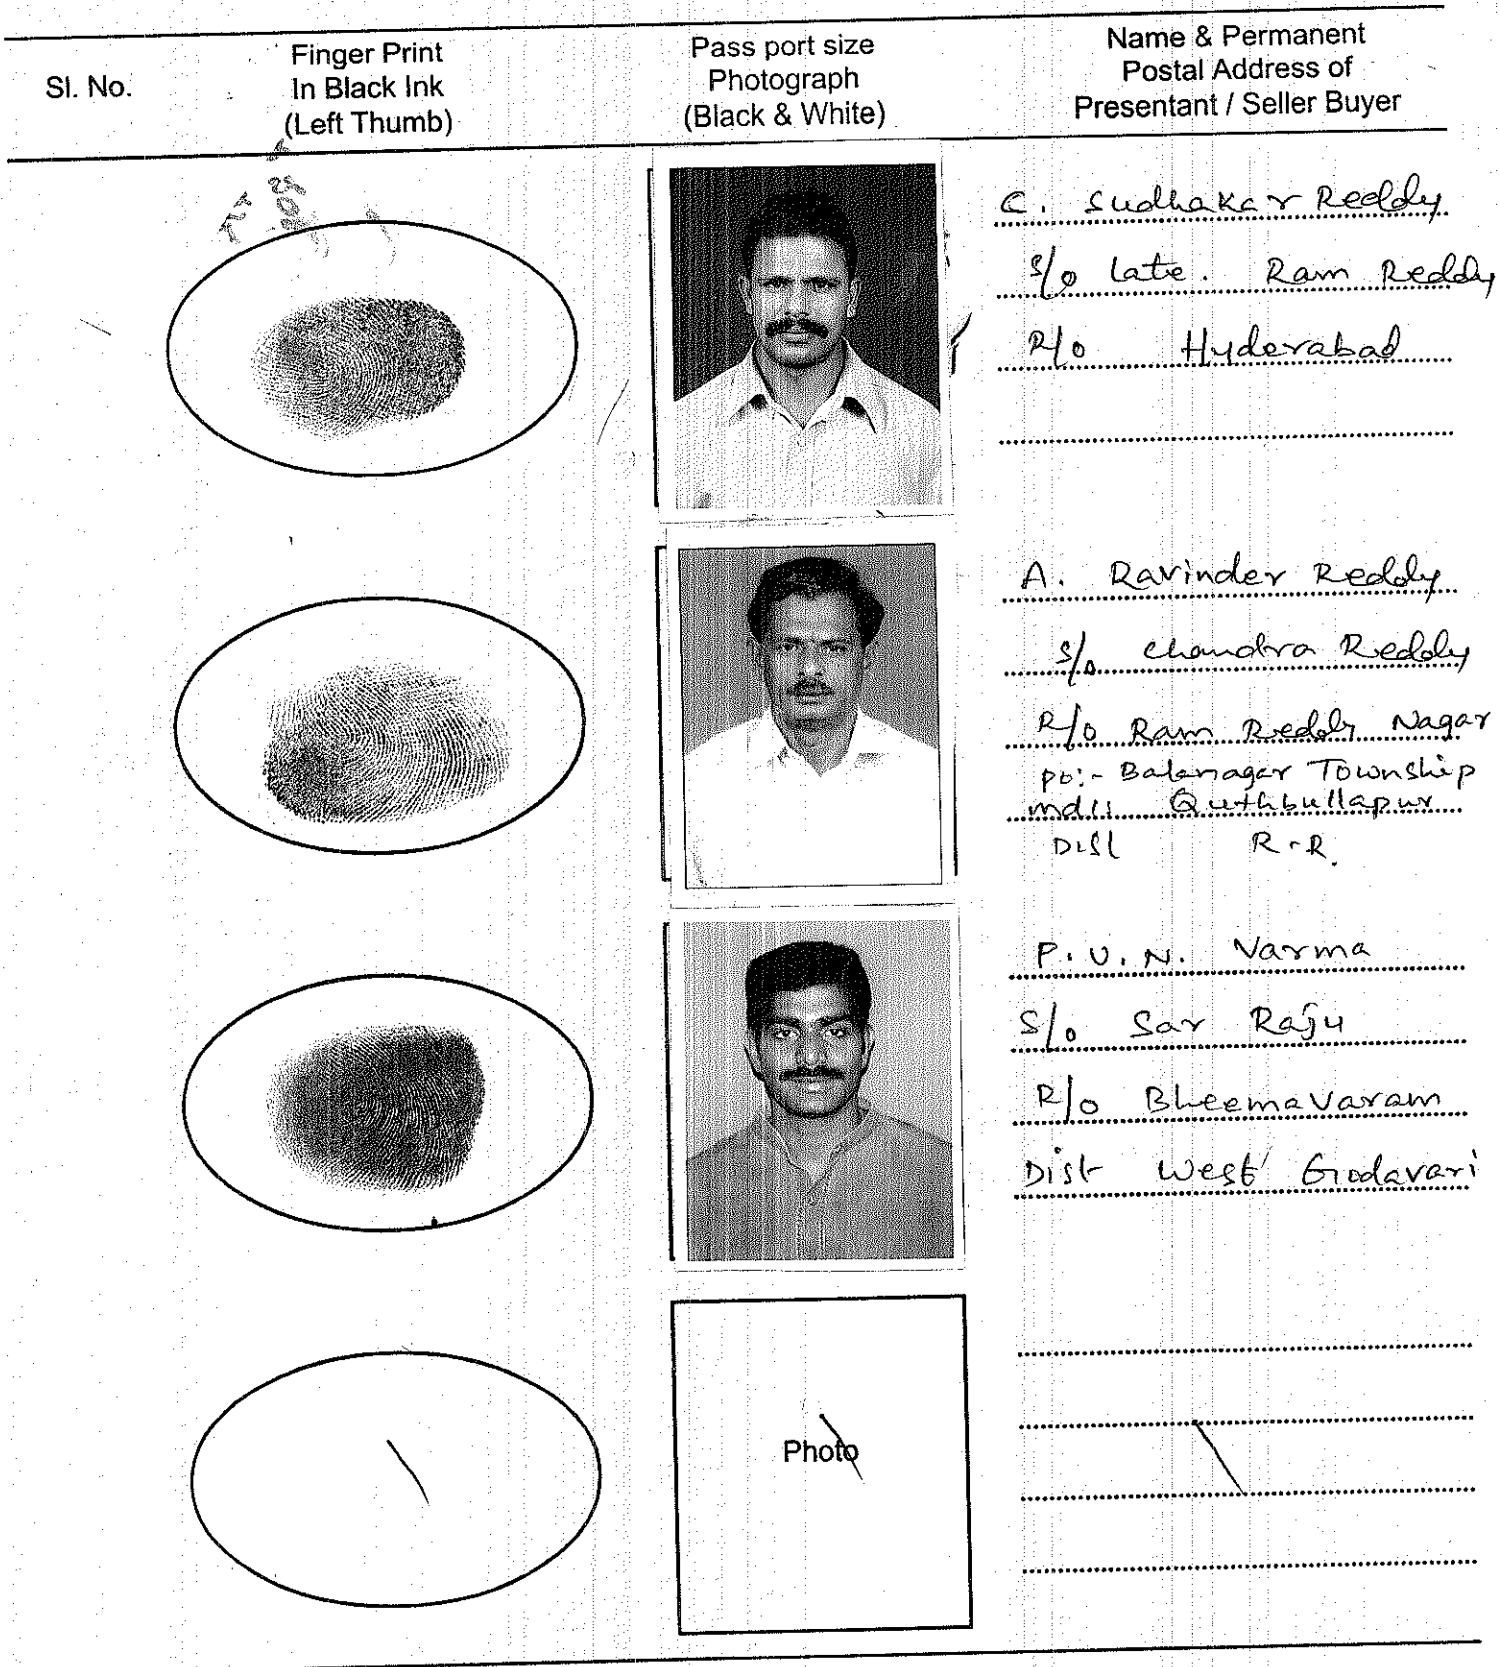 Sl. No.
Finger Print
In Black Ink
(Left Thumb)
Pass port size
Photograph
(Black & White)
Name & Permanent
Postal Address of
Presentant / Seller Buyer
C. Sudhakar Reddy
S/o Late. Ram Reddy
R/o Hyderabad
A. Ravinder Reddy
S/o Chandra Reddy
R/o Ram Reddy Nagar
Po:- Balanagar Township
Mdl: Quthbullapur
Dist R.R.
P.V.N. Varma
S/o Sar Raju
R/o Bheemavaram
Dist West Godavari
Photo